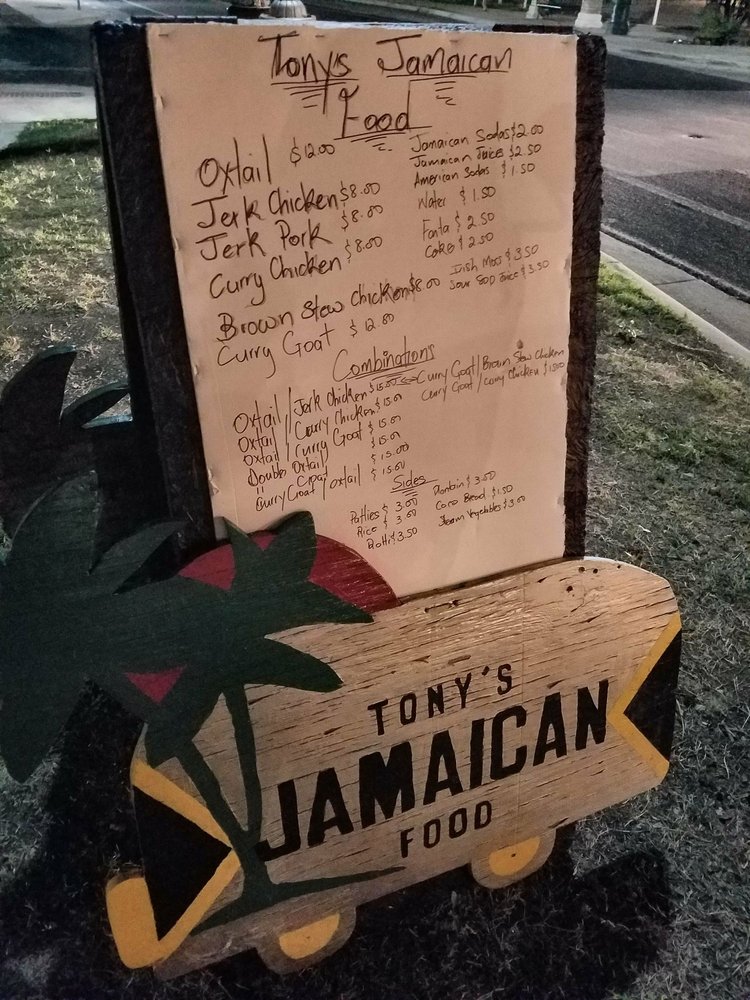 Tony's Jamaican
Food
Oxtail $12.00
Jerk Chicken $8.00
Jerk Pork $8.00
Curry Chicken $8.00
Brown Stew Chicken $8.00
Curry Goat $12.00
Jamaican Sodas $2.00
Jamaican Juices $2.50
American Sodas $1.50
Water $1.50
Fanta $2.50
Coke $2.50
Irish Moss $3.50
Sour Sop Juice $3.50
Combinations
Oxtail / Jerk Chicken $15.00
Oxtail / Curry Chicken $15.00
Oxtail / Curry Goat $15.00
Double Oxtail $15.00
" Goat $15.00
Curry Goat / oxtail $15.00
Curry Goat / Brown Stew Chicken
Curry Goat / curry Chicken $15.00
Sides
Patties $3.00
Rice $3.00
Rotti $3.50
Plantain $3.00
Coco Bread $1.50
Steam Vegetables $3.00
TONY'S
JAMAICAN
FOOD